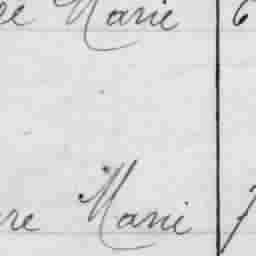 ée Marie 6
re Marie 7